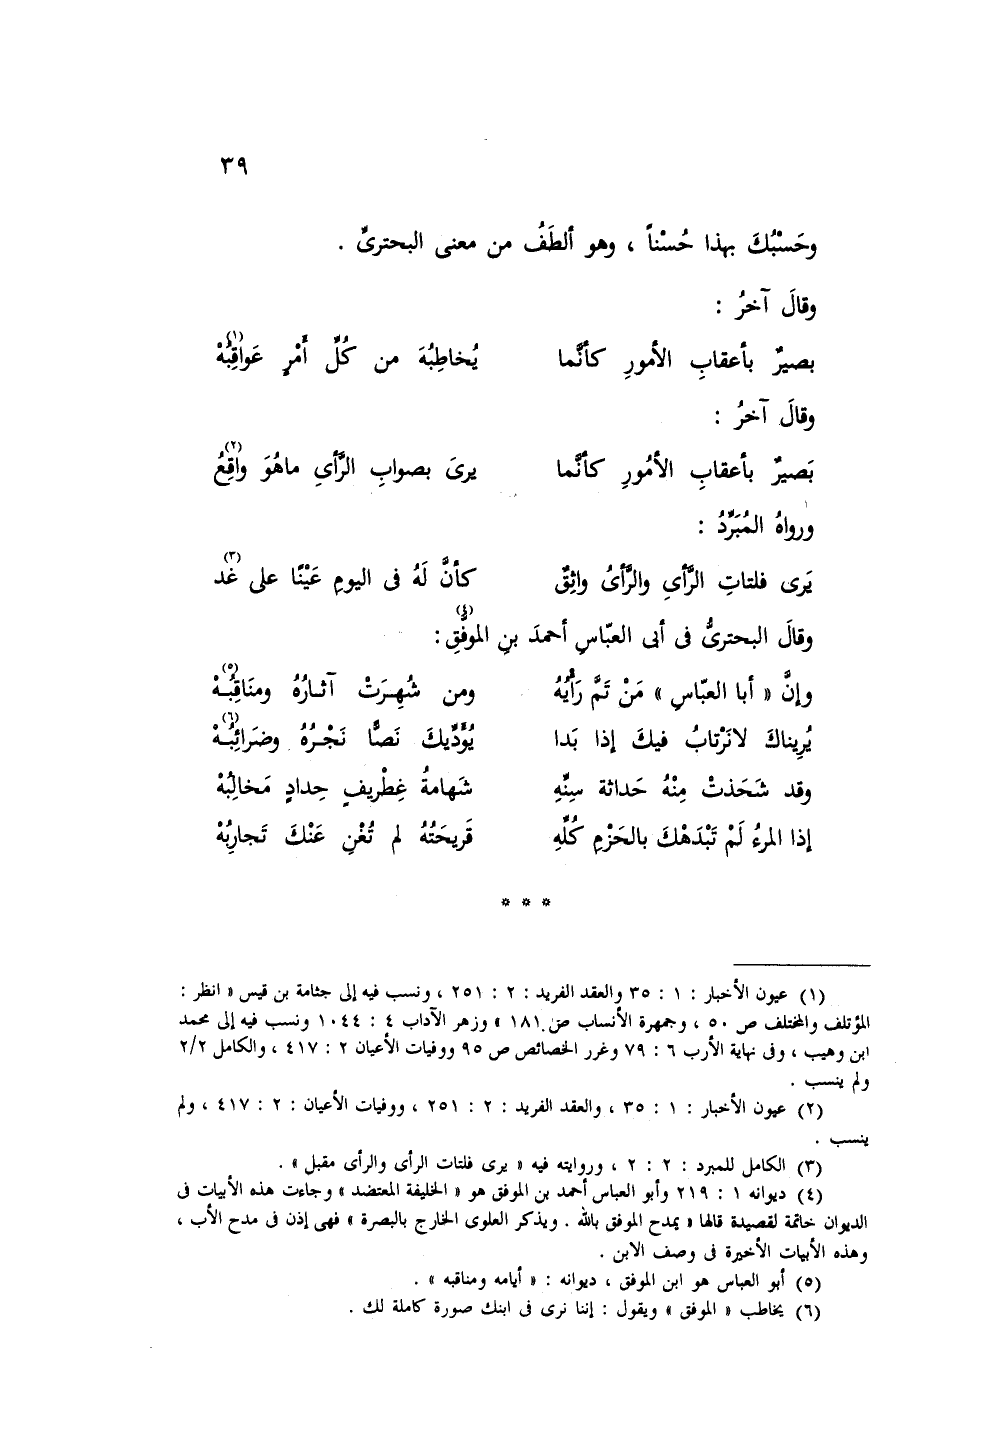 ٣٩
وحَسْبُكَ بهذا حُسْناً ، وهو ألطَفُ من معنى البحترىِّ .
وقالَ آخرُ :
بصيرٌ بأعقابِ الأمورِ كأنَّما يُخاطِبُهَ من كُلِّ أَمْرٍ عَواقِبُهْ (١)
وقالَ آخرُ :
بَصيرٌ بأعقابِ الأمُورِ كأنَّما يرىَ بصوابِ الرَّأىِ ماهُوَ واقِعُ (٢)
ورواهُ المُبَرِّدُ :
يَرى فلتاتِ الرَّأىِ والرَّأىُ واثِقٌ كأنَّ لَهُ فى اليومِ عَيْنًا على غَد (٣)
وقالَ البحترىُّ فى أبى العبّاسِ أحمدَ بنِ الموفَّقِ : (٤)
وإنَّ « أبا العبّاسِ » مَنْ تَمَّ رَأْيُهُ ومن شُهِرَتْ آثارُهُ ومنَاقِبُهْ (٥)
يُرِيناكَ لانَرْتابُ فيكَ إذا بَدا يُؤَدِّيكَ نَصًّا نَجْرُهُ وضَرائِبُهْ (٦)
وقد شَحَذتْ مِنْهُ حَداثة سِنِّهِ شَهامةُ غِطْريفٍ حِدادٍ مَخالِبُهْ
إذا المرءُ لَمْ تَبْدَهْكَ بالحَزْمِ كُلِّهِ قَريحَتُهُ لم تُغْنِ عَنْكَ تَجارِبُهْ
* * *
(١) عيون الأخبار : ١ : ٣٥ والعقد الفريد : ٢ : ٢٥١ ، ونسب فيه إلى جثامة بن قيس « انظر :
المؤتلف والمختلف ص ٥٠ ، وجمهرة الأنساب ص ١٨١ » وزهر الآداب ٤ : ١٠٤٤ ونسب فيه إلى محمد
ابن وهيب ، وفى نهاية الأرب ٦ : ٧٩ وغرر الخصائص ص ٩٥ ووفيات الأعيان ٢ : ٤١٧ ، والكامل ٢/٢
ولم ينسب .
(٢) عيون الأخبار : ١ : ٣٥ ، والعقد الفريد : ٢ : ٢٥١ ، ووفيات الأعيان : ٢ : ٤١٧ ، ولم
ينسب .
(٣) الكامل للمبرد : ٢ : ٢ ، وروايته فيه « يرى فلتات الرأى والرأى مقبل » .
(٤) ديوانه ١ : ٢١٩ وأبو العباس أحمد بن الموفق هو « الخليفة المعتضد » وجاءت هذه الأبيات فى
الديوان خاتمة لقصيدة قالها « يمدح الموفق بالله . ويذكر العلوى الخارج بالبصرة » فهى إذن فى مدح الأب ،
وهذه الأبيات الأخيرة فى وصف الابن .
(٥) أبو العباس هو ابن الموفق ، ديوانه : « أيامه ومناقبه » .
(٦) يخاطب « الموفق » ويقول : إننا نرى فى ابنك صورة كاملة لك .